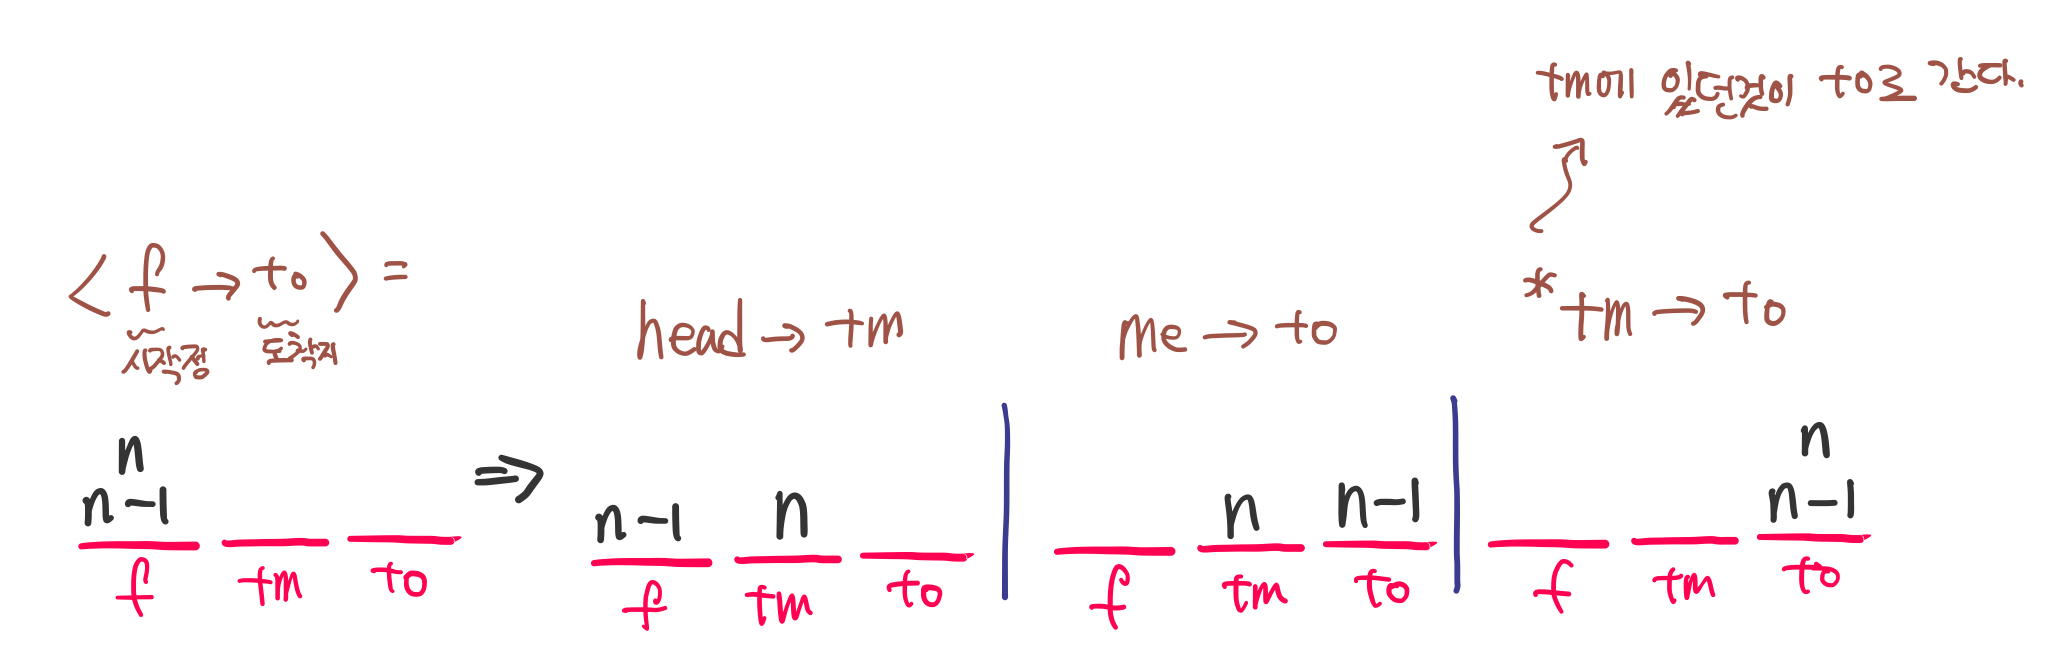 tm에 있던것이 to로 간다.
<f → to> =
시작장 도착지
head → tm
me → to
*tm → to
n
n-1
f tm to
⇒
n-1 n
f tm to
n n-1
f tm to
n
n-1
f tm to